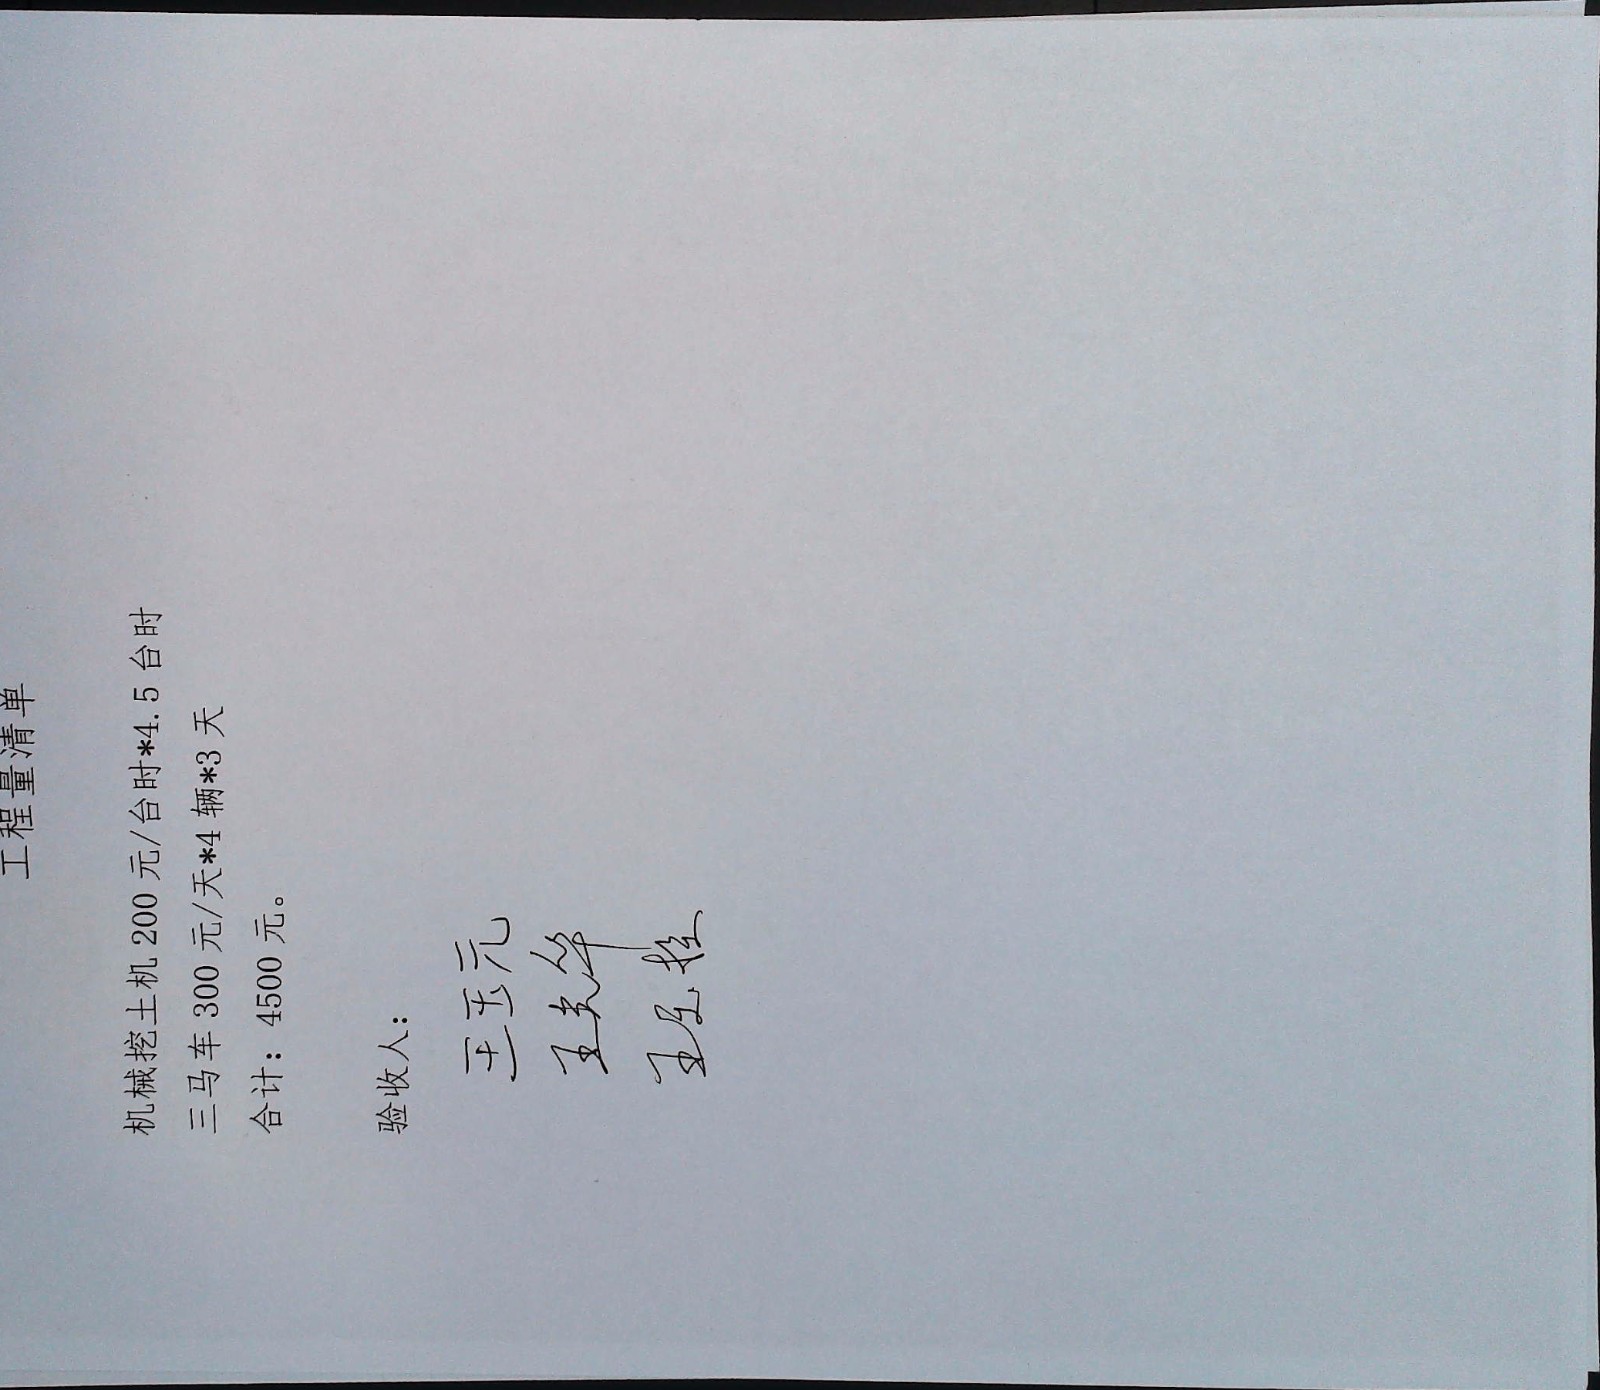 工程量清单
机械挖土机 200 元/台时*4.5 台时
三马车 300 元/天*4 辆*3 天
合计：4500 元。
验收人：
王玉元
王
王